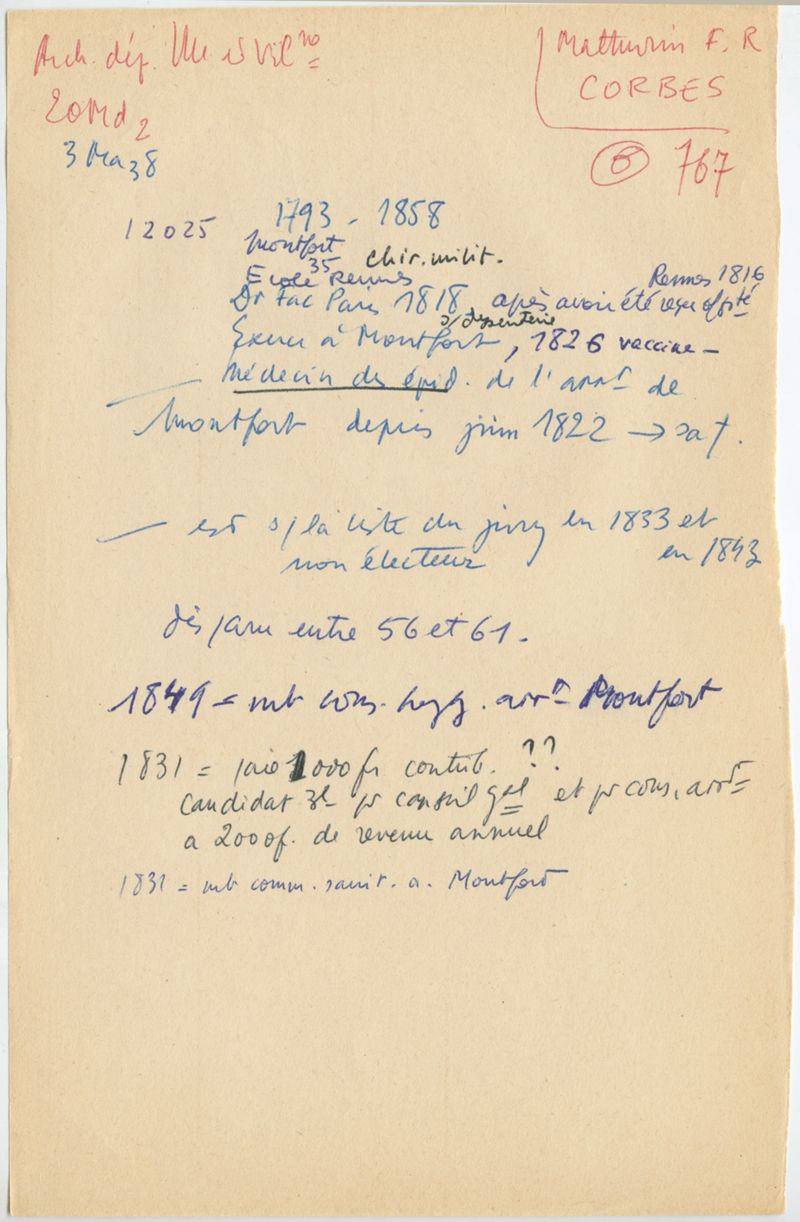 Arch. dép. Ille et Vil
Mathurin F. R
CORBES
20 Md 2
3 Ma 38
6 767
12025 1793 - 1858
Montfort
35 chir. milit.
Ecole Rennes Rennes 1816
Dr Fac Paris 1818 après avoir été reçu off. sté
s/ dysenterie
Exerce à Montfort, 1826 vaccine -
Médecin des épid. de l'arrt de
Montfort depuis juin 1822 → sa †.
- est s/ la liste du jury en 1833 et
non électeur en 1843
disparu entre 56 et 61.
1849 = mb cons. hyg. arrt Montfort
1831 = paie 1000 fr contrib. ??
Candidat 31 pr conseil gal et pr cons. arrt
a 2000 f. de revenu annuel
1831 = mb comm. sanit. a. Montfort